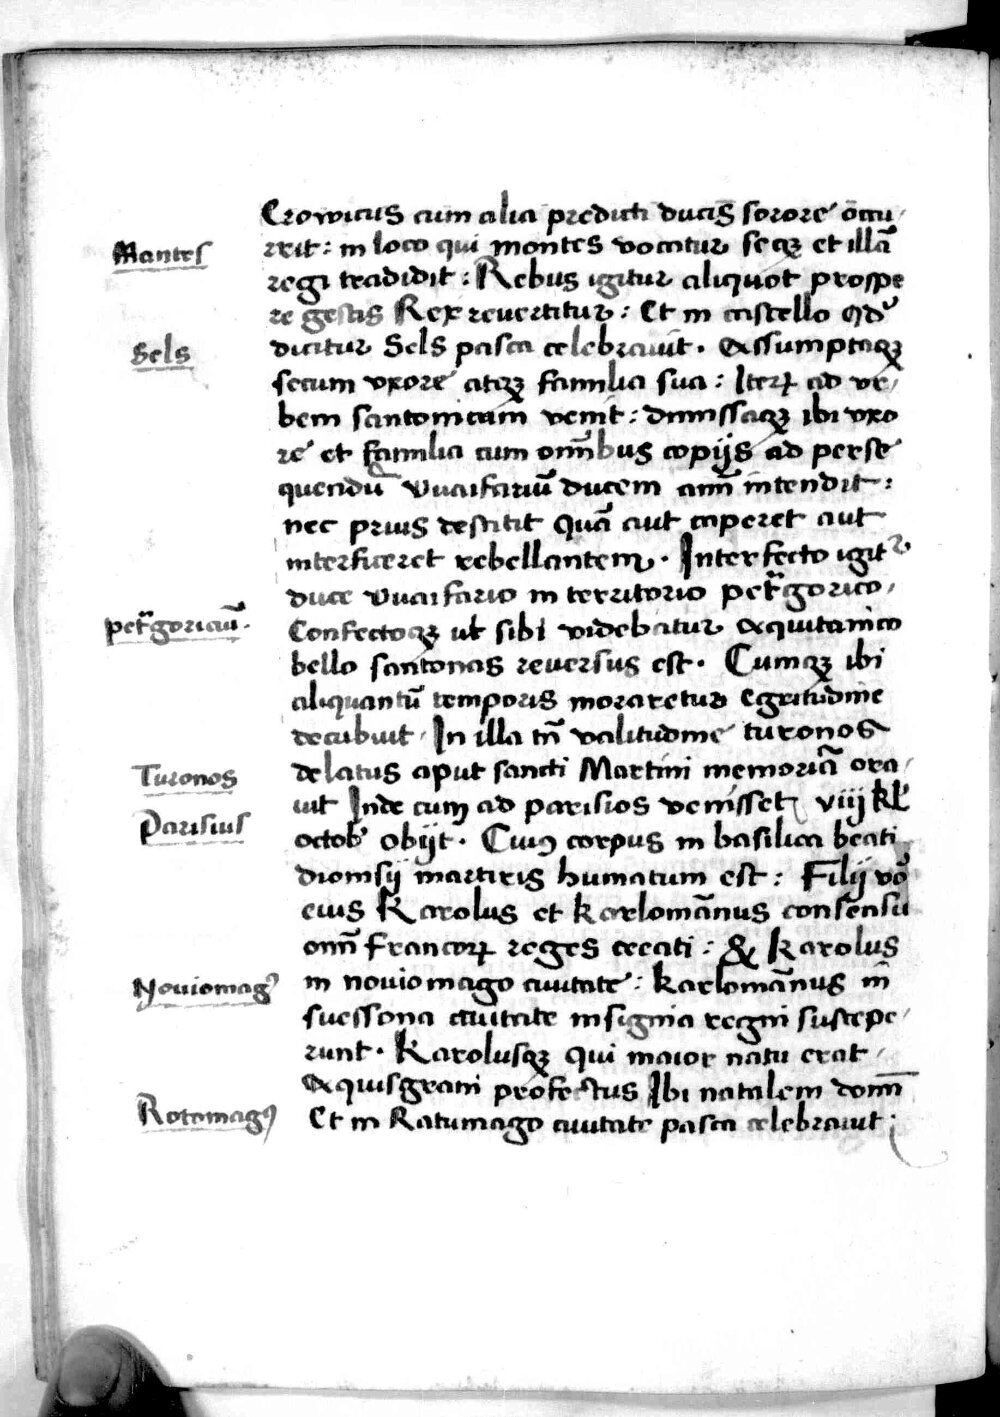 Crowicus cum alia predicti ducis sorore occu-
Mantes
rrit: in loco qui montes vocatur seqȝ et illā
regi tradidit: Rebus igitur aliquot prospe
re gestis Rex revertitur: Et in castello qd'
Sels
dicitur Sels pasca celebravit. Assumptaqȝ
secum vxore atqȝ familia sua: Iterꝝ ad vr-
bem santonicam venit: dimissaqȝ ibi vxo
re et familia cum omībus copijs ad perse
quendū vuaifariū ducem anīm intendit:
nec prius destitit quā aut caperet aut
interficeret rebellantem. Interfecto igitr
duce vuaifario in territorio petᵃgorico,
petᵃgoricū.
Confectoqȝ ut sibi videbatur Aquitanico
bello santonas reversus est. Cumqȝ ibi
aliquantū temporis moraretur Egritudine
decubuit. In illa tn̄ valitudine turonos
Turonos
delatus aput sancti Martini memoriā ora-
Parisius
vit Inde cum ad parisios venisset viij kl'
octob' obijt. Cuiꝰ corpus in basilica beati
dionisij martiris humatum est: Filij vō
eius Karolus et karlomānus consensu
omīm Francorꝝ reges creati: & Karolus
Noviomagꝰ
in noviomago civitate: karlomānus in
suessona civitate insignia regni suscepe-
runt. Karolusqȝ qui maior natu erat
Aquisgrani profectus Ibi natalem domī
Rotomagꝰ
Et in Ratumago civitate pasca celebravit: